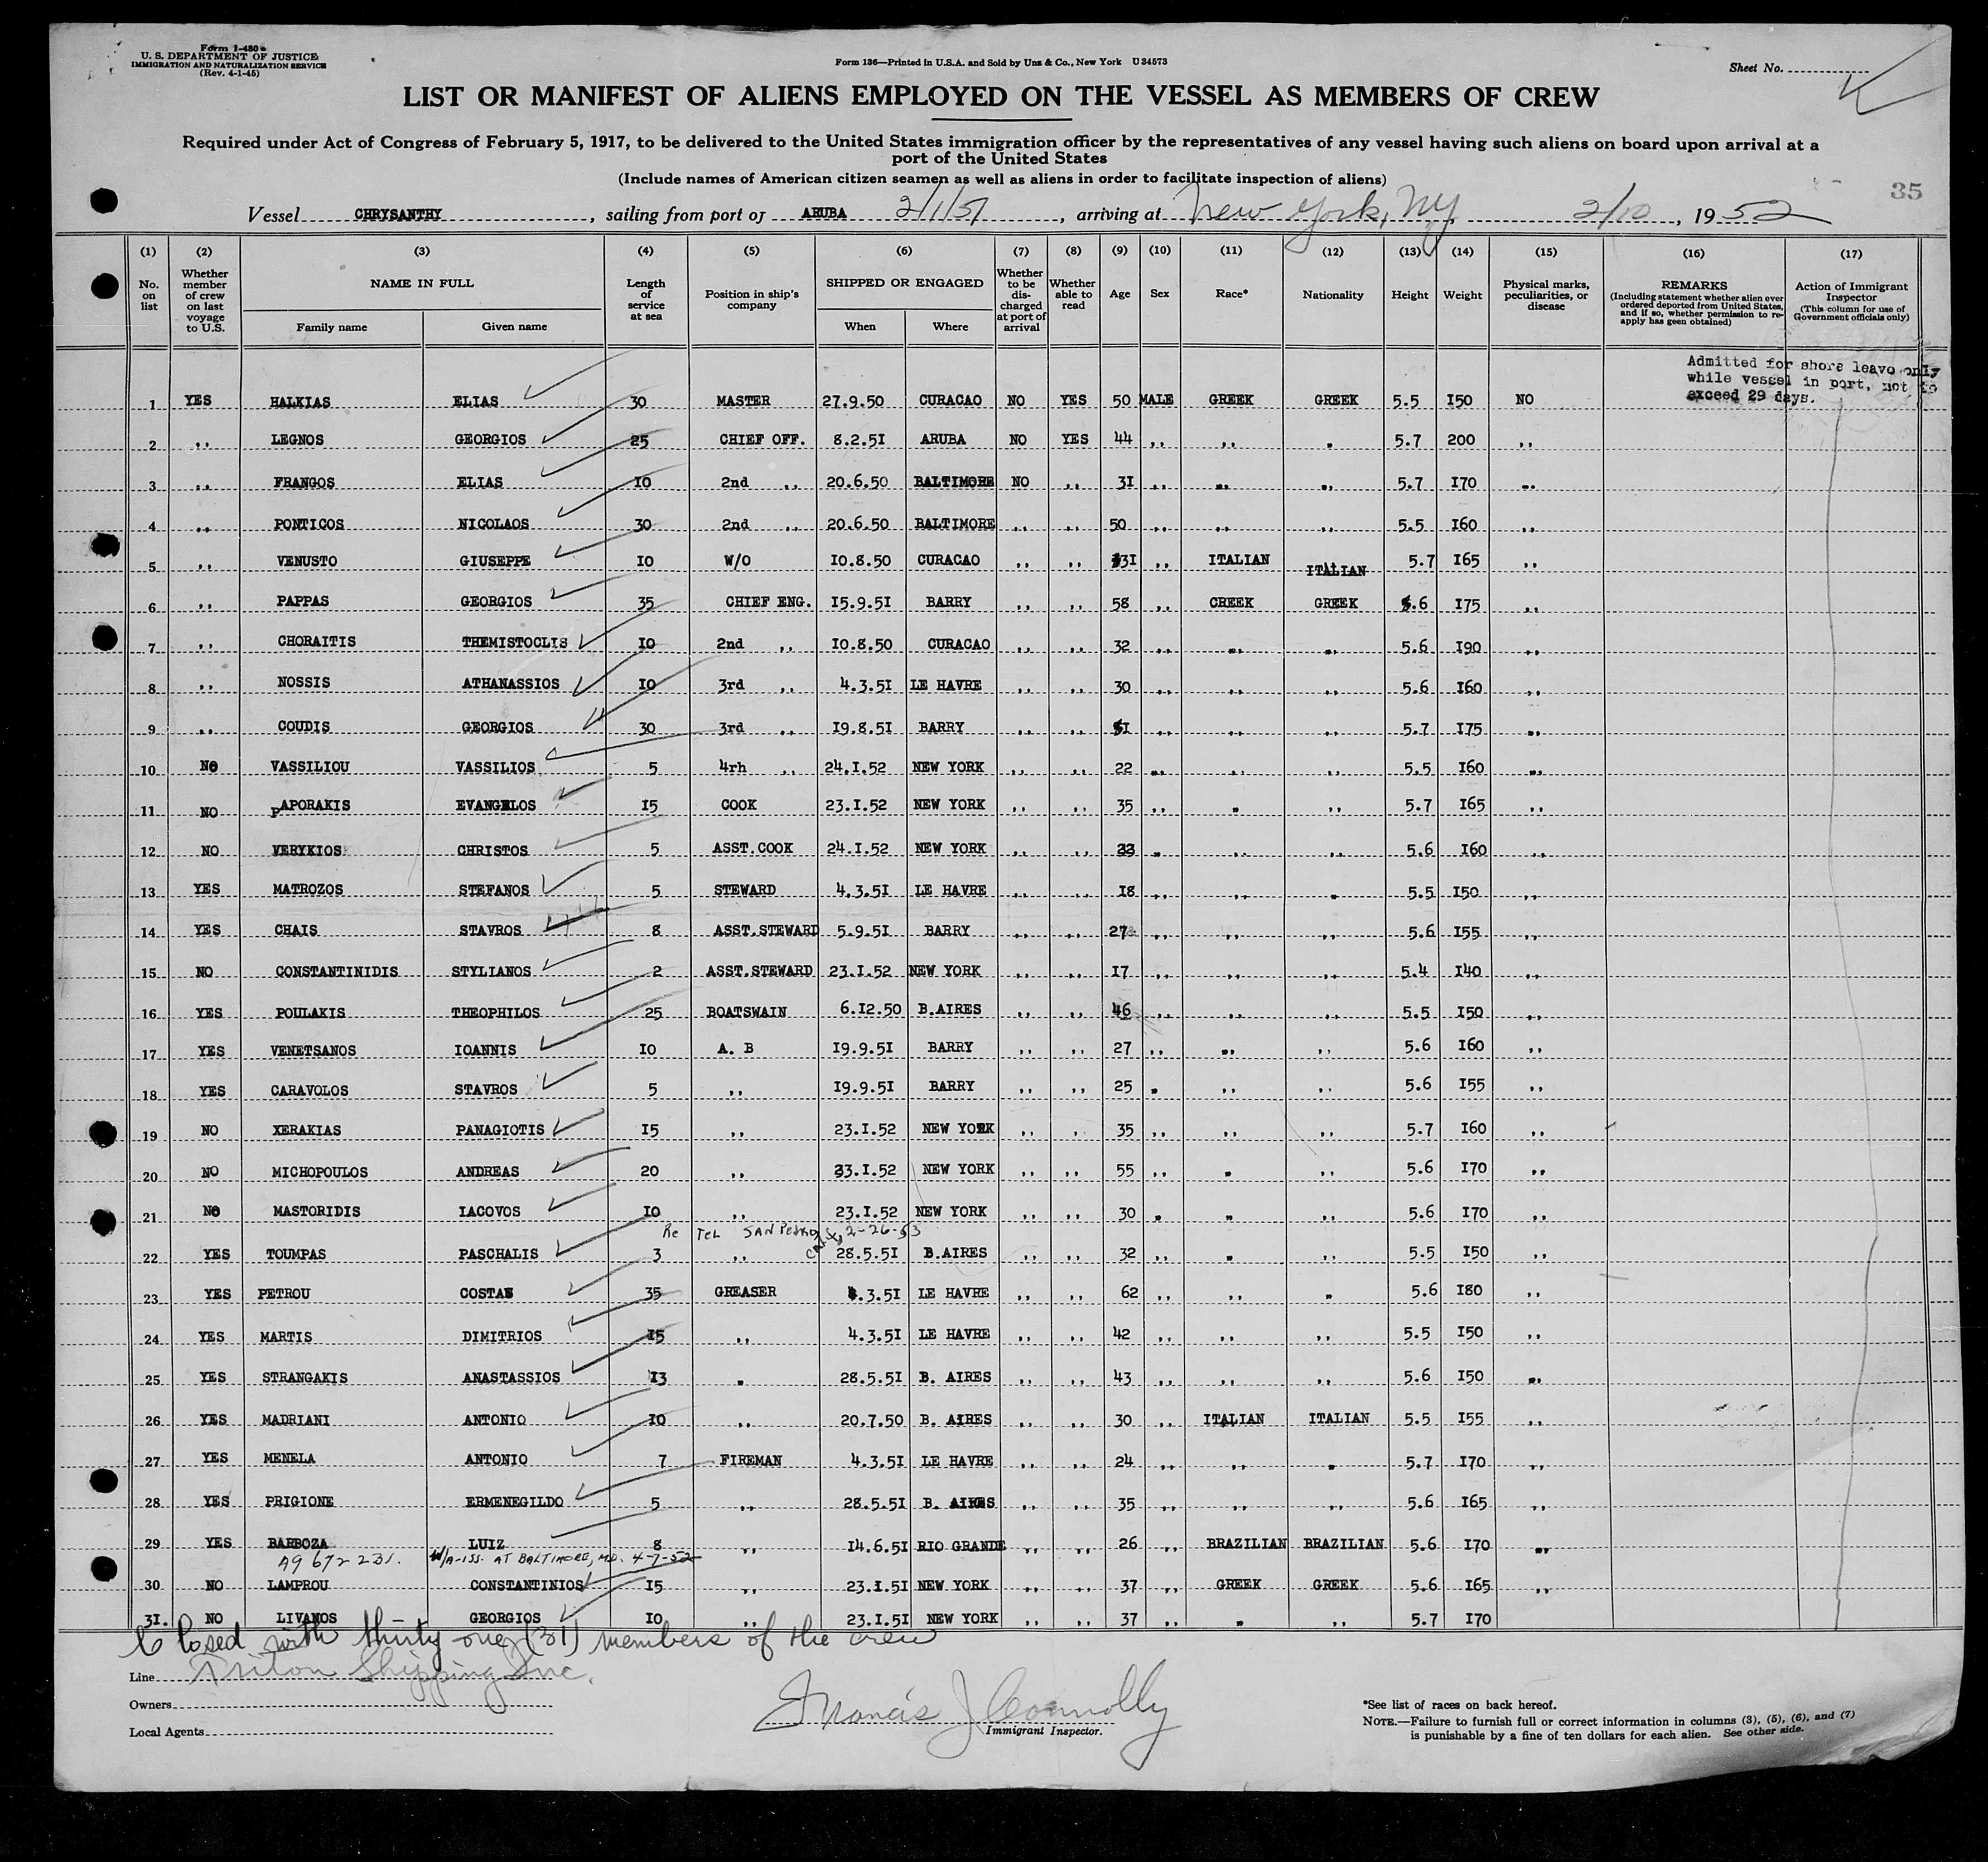 Form I-480
U. S. DEPARTMENT OF JUSTICE
IMMIGRATION AND NATURALIZATION SERVICE
(Rev. 4-1-45)
Form 136—Printed in U.S.A. and Sold by Unz & Co., New York U 34573
Sheet No.
LIST OR MANIFEST OF ALIENS EMPLOYED ON THE VESSEL AS MEMBERS OF CREW
Required under Act of Congress of February 5, 1917, to be delivered to the United States immigration officer by the representatives of any vessel having such aliens on board upon arrival at a
port of the United States
(Include names of American citizen seamen as well as aliens in order to facilitate inspection of aliens)
35
Vessel CHRYSANTHY, sailing from port of ARUBA 2/1/51, arriving at New York, NY, 2/10, 1952
(1) (2) (3) (4) (5) (6) (7) (8) (9) (10) (11) (12) (13) (14) (15) (16) (17)
No. on list
Whether member of crew on last voyage to U.S.
NAME IN FULL
Family name Given name
Length of service at sea
Position in ship's company
SHIPPED OR ENGAGED
When Where
Whether to be discharged at port of arrival
Whether able to read
Age
Sex
Race*
Nationality
Height
Weight
Physical marks, peculiarities, or disease
REMARKS
(Including statement whether alien ever ordered deported from United States, and if so, whether permission to reapply has geen obtained)
Action of Immigrant Inspector
(This column for use of Government officials only)
Admitted for shore leave only
while vessel in port, not to
exceed 29 days.
1 YES HALKIAS ELIAS 30 MASTER 27.9.50 CURACAO NO YES 50 MALE GREEK GREEK 5.5 I50 NO
2 ,, LEGNOS GEORGIOS 25 CHIEF OFF. 8.2.5I ARUBA NO YES 44 ,, ,, . 5.7 200 ,,
3 ,, FRANGOS ELIAS I0 2nd ,, 20.6.50 BALTIMORE NO ,, 3I ,, ,, ,, 5.7 I70 ,,
4 ,, PONTICOS NICOLAOS 30 2nd ,, 20.6.50 BALTIMORE ,, ,, 50 ,, ,, ,, 5.5 I60 ,,
5 ,, VENUSTO GIUSEPPE I0 W/O I0.8.50 CURACAO ,, ,, 3I ,, ITALIAN ITALIAN 5.7 I65 ,,
6 ,, PAPPAS GEORGIOS 35 CHIEF ENG. I5.9.5I BARRY ,, ,, 58 ,, CREEK GREEK 5.6 I75 ,,
7 ,, CHORAITIS THEMISTOCLIS I0 2nd ,, I0.8.50 CURACAO ,, ,, 32 ,, ,, ,, 5.6 I90 ,,
8 ,, NOSSIS ATHANASSIOS I0 3rd ,, 4.3.5I LE HAVRE ,, ,, 30 ,, ,, ,, 5.6 I60 ,,
9 ,, COUDIS GEORGIOS 30 3rd ,, I9.8.5I BARRY ,, ,, 5I ,, ,, ,, 5.7 I75 ,,
10 NO VASSILIOU VASSILIOS 5 4rh ,, 24.I.52 NEW YORK ,, ,, 22 ,, ,, ,, 5.5 I60 ,,
11 NO PAPORAKIS EVANGELOS I5 COOK 23.I.52 NEW YORK ,, ,, 35 ,, . ,, 5.7 I65 ,,
12 NO VERYKIOS CHRISTOS 5 ASST.COOK 24.I.52 NEW YORK ,, ,, 33 . ,, ,, 5.6 I60 ,,
13 YES MATROZOS STEFANOS 5 STEWARD 4.3.5I LE HAVRE ,, ,, I8 ,, ,, . 5.5 I50 ,,
14 YES CHAIS STAVROS 8 ASST.STEWARD 5.9.5I BARRY ,, ,, 27 ,, ,, ,, 5.6 I55 ,,
15 NO CONSTANTINIDIS STYLIANOS 2 ASST.STEWARD 23.I.52 NEW YORK ,, ,, I7 ,, ,, ,, 5.4 I40 ,,
16 YES POULAKIS THEOPHILOS 25 BOATSWAIN 6.I2.50 B.AIRES ,, ,, 46 ,, ,, ,, 5.5 I50 ,,
17 YES VENETSANOS IOANNIS I0 A. B I9.9.5I BARRY ,, ,, 27 ,, ,, ,, 5.6 I60 ,,
18 YES CARAVOLOS STAVROS 5 ,, I9.9.5I BARRY ,, ,, 25 . ,, ,, 5.6 I55 ,,
19 NO XERAKIAS PANAGIOTIS I5 ,, 23.I.52 NEW YORK ,, ,, 35 ,, ,, ,, 5.7 I60 ,,
20 NO MICHOPOULOS ANDREAS 20 ,, 23.I.52 NEW YORK ,, ,, 55 ,, . ,, 5.6 I70 ,,
21 NO MASTORIDIS IACOVOS I0 ,, 23.I.52 NEW YORK ,, ,, 30 . . ,, 5.6 I70 ,,
Re TEL SAN PEDRO CALIF, 2-26-53
22 YES TOUMPAS PASCHALIS 3 ,, 28.5.5I B.AIRES ,, ,, 32 ,, . ,, 5.5 I50 ,,
23 YES PETROU COSTAS 35 GREASER 4.3.5I LE HAVRE ,, ,, 62 ,, ,, . 5.6 I80 ,,
24 YES MARTIS DIMITRIOS I5 ,, 4.3.5I LE HAVRE ,, ,, 42 ,, ,, ,, 5.5 I50 ,,
25 YES STRANGAKIS ANASTASSIOS I3 . 28.5.5I B. AIRES ,, ,, 43 ,, ,, ,, 5.6 I50 ,,
26 YES MADRIANI ANTONIO I0 ,, 20.7.50 B. AIRES ,, ,, 30 ,, ITALIAN ITALIAN 5.5 I55 ,,
27 YES MENELA ANTONIO 7 FIREMAN 4.3.5I LE HAVRE ,, ,, 24 ,, ,, . 5.7 I70 ,,
28 YES PRIGIONE ERMENEGILDO 5 ,, 28.5.5I B. AIRES ,, ,, 35 ,, ,, ,, 5.6 I65 ,,
29 YES BARBOZA LUIZ 8 ,, I4.6.5I RIO GRANDE ,, ,, 26 ,, BRAZILIAN BRAZILIAN 5.6 I70 ,,
A9 672 231. W/A-ISS. AT BALTIMORE, MD. 4-7-52
30 NO LAMPROU CONSTANTINIOS I5 ,, 23.I.5I NEW YORK ,, ,, 37 ,, GREEK GREEK 5.6 I65 ,,
3I. NO LIVANOS GEORGIOS I0 ,, 23.I.5I NEW YORK ,, ,, 37 ,, . ,, 5.7 I70
Closed with thirty one (31) members of the crew
Line Triton Shipping Inc.
Owners
Local Agents
Francis J Connolly
Immigrant Inspector.
*See list of races on back hereof.
NOTE.—Failure to furnish full or correct information in columns (3), (5), (6), and (7)
is punishable by a fine of ten dollars for each alien. See other side.